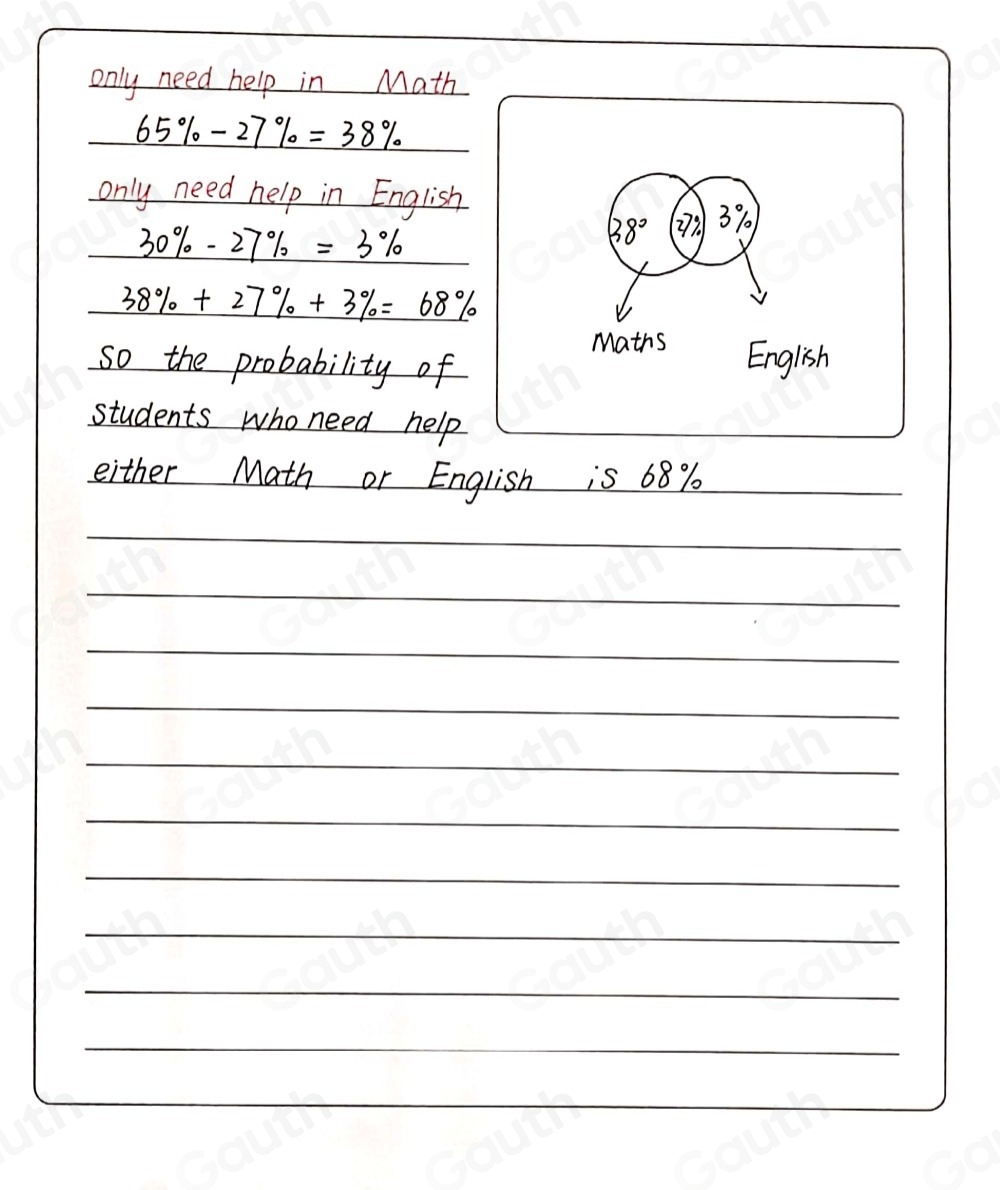 only need help in Math
65% - 27% = 38%
only need help in English
30% - 27% = 3%
38% + 27% + 3% = 68%
so the probability of
students who need help
either Math or English is 68%
38° 27% 3%
Maths
English
Gauth